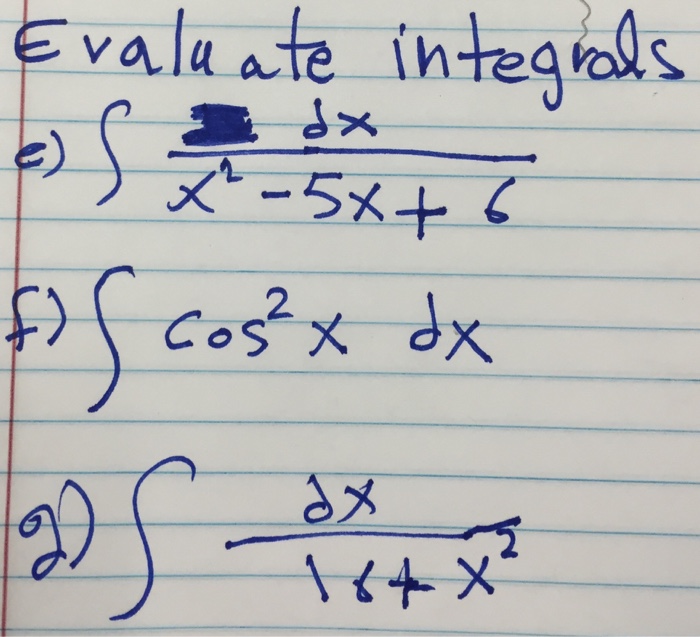 Evaluate integrals
e) ∫ dx / x² - 5x + 6
f) ∫ cos² x dx
g) ∫ dx / 16 + x²